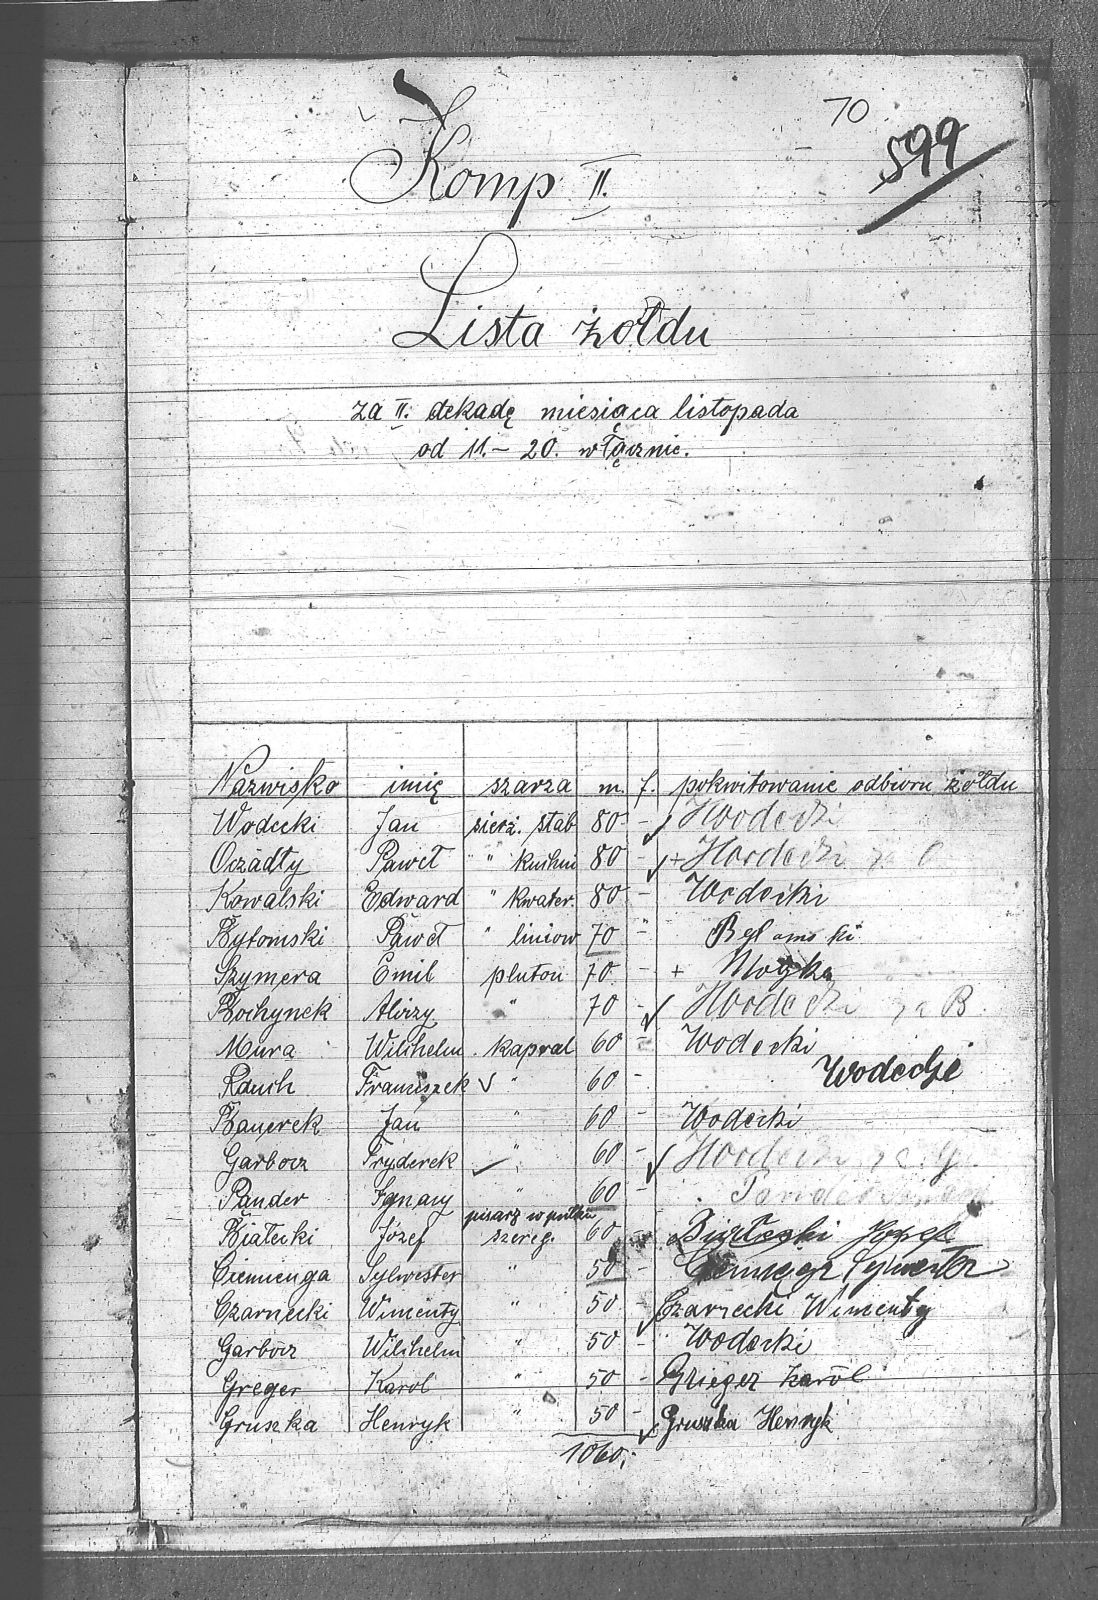 70
599
Komp II.
Lista żołdu
za II. dekadę miesiąca listopada
od 11.– 20. włącznie.
Nazwisko imię szarża m. f. pokwitowanie odbioru żołdu
Wodecki Jan sierż. stab 80 – Wodecki
Oczadły Paweł " kuchni 80 – + Wodecki za O
Kowalski Edward " kwater. 80 – Wodecki
Bytomski Paweł " liniow 70 "
Szymera Emil pluton 70 – + Motyka
Bochynek Alojzy " 70 – Wodecki za B.
Mura Wilhelm kapral 60 – Wodecki
Rduch Franciszek " 60 – Wodecki
Banerek Jan " 60 – Wodecki
Garbocz Fryderek " 60 – Wodecki za G.
Pander Ignacy " 60 – Pander
pisarz w pułku
Białecki Józef szereg. 60 – Białecki Józef
Ciemienga Sylwester " 50 – Ciemięga Sylwester
Czarnecki Wincenty " 50 – Czarnecki Wincenty
Garbocz Wilhelm " 50 – Wodecki
Greger Karol " 50 – Grieger Karol
Gruszka Henryk " 50 – Gruszka Henryk
1060,-